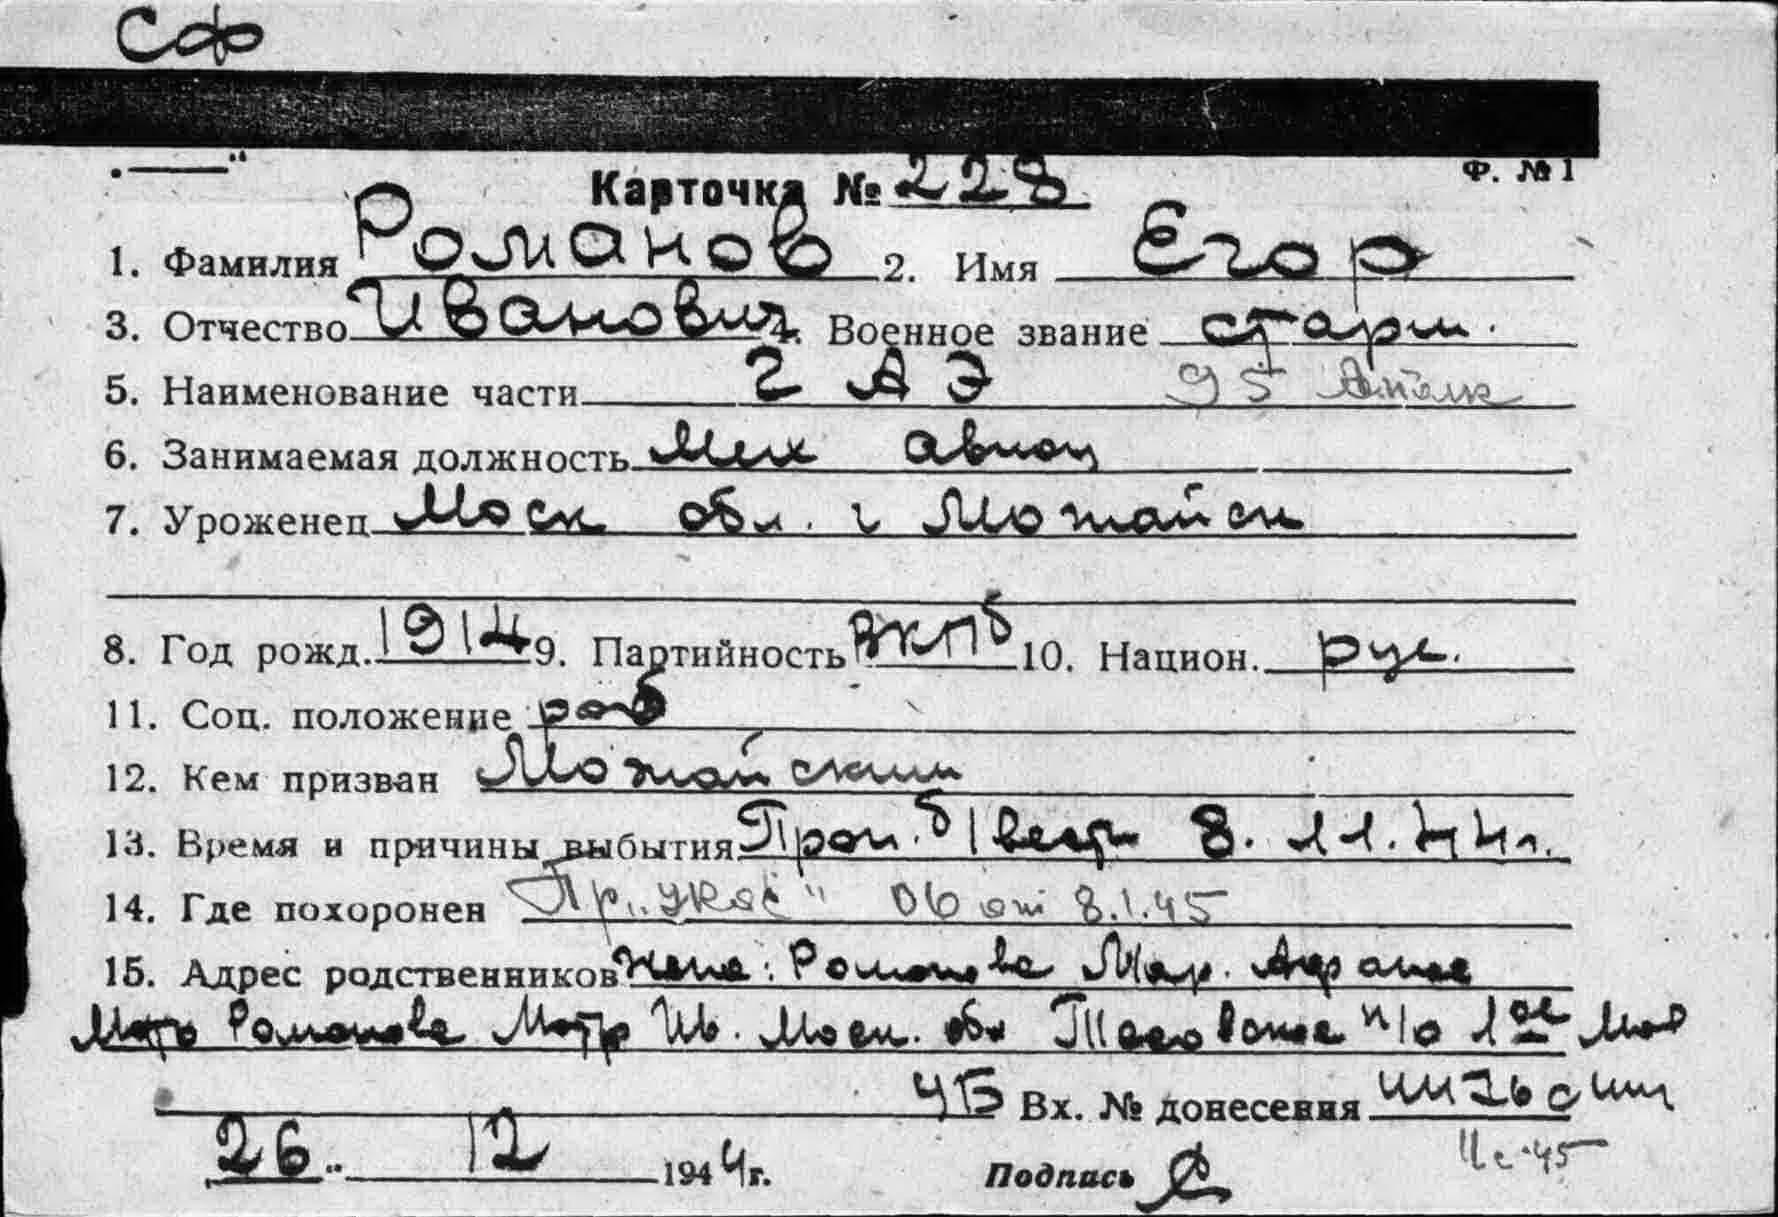 Сф
„——"
Ф. №1
Карточка № 228
1. Фамилия Романов 2. Имя Егор
3. Отчество Иванович 4. Военное звание старш.
5. Наименование части 2 АЭ 95 Апполк
6. Занимаемая должность Мех авиац
7. Уроженец Моск обл. г Можайск
8. Год рожд. 1914 9. Партийность ВКПб 10. Национ. рус.
11. Соц. положение раб
12. Кем призван Можайским
13. Время и причины выбытия Проп. б/вести 8. 11. 44 г.
14. Где похоронен Пр. 06 от 8.1.45
15. Адрес родственников Жена: Романова Мар.
Мать Романова Матр Ив. Моск. обл п/о 1ое
Вх. № донесения
26 12 1944 г. Подпись